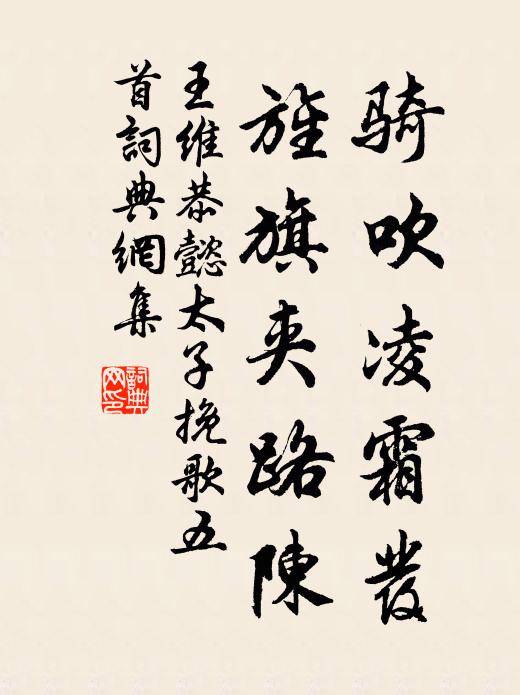 骑吹凌霜發
旌旗夹路陳
王維恭懿太子挽歌五
首詞典網集
詞典网印